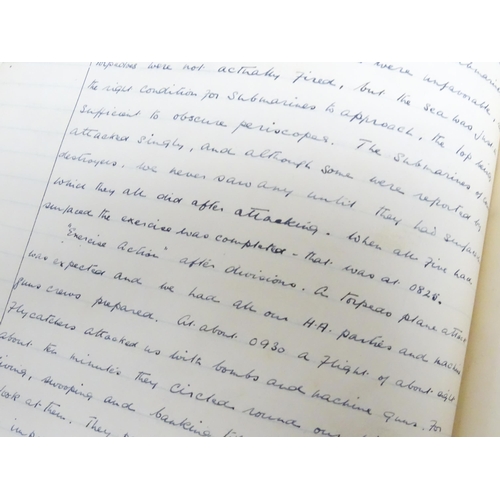 were unfavorable.
torpedoes were not actually fired, but the sea was just
the right condition for submarines to approach, the lop being
sufficient to obscure periscopes. The submarines
attacked singly, and although some were reported by
destroyers, we never saw any until they had surfaced
which they all did after attacking. When all five had
surfaced the exercise was completed - that was at 0820.
"Exercise Action" after divisions. A Torpedo plane attack
was expected and we had all our H.A. parties and machine
guns crews prepared. At about 0930 a flight of about eight
Flycatchers attacked us with bombs and machine guns. For
about ten minutes they circled round our
diving, swooping and banking
look at them. They